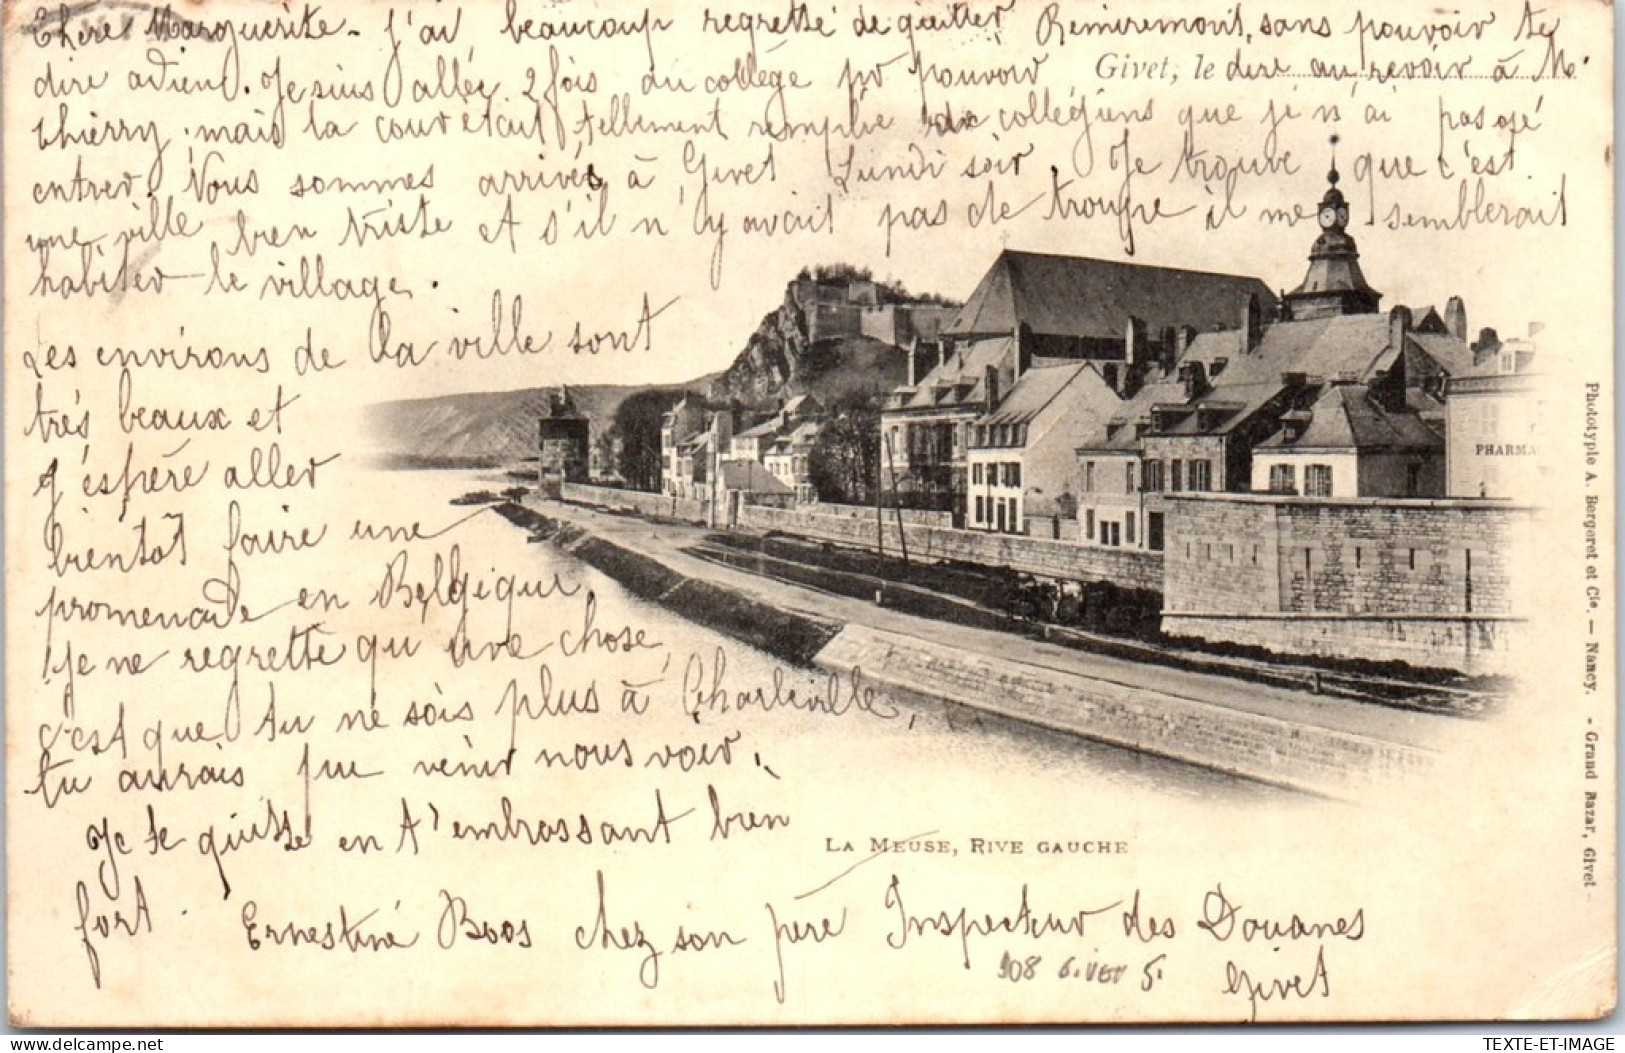 Chère Marguerite - J'ai beaucoup regretté de quitter Remiremont, sans pouvoir te
dire adieu. Je suis allée 2 fois au collège pr pouvoir
Givet, le dire au revoir à M.
Thierry, mais la cour était tellement remplie de collégiens que je n'ai pas osé
entrer. Nous sommes arrivés à Givet Lundi soir. Je trouve que c'est
une ville bien triste et s'il n'y avait pas de troupe il me semblerait
habiter le village.
Les environs de la ville sont
très beaux et
j'espère aller
bientôt faire une
promenade en Belgique,
je ne regrette qu'une chose,
c'est que tu ne sois plus à Charleville,
tu aurais pu venir nous voir.
Je te quitte en t'embrassant bien
fort.
Ernestine Boos chez son père Inspecteur des Douanes
Givet
PHARMA
LA MEUSE, RIVE GAUCHE
908 Givet 5.
Phototypie A. Bergeret et Cie. — Nancy. - Grand Bazar, Givet -
delcampe.net/erosanciens
TEXTE-ET-IMAGE